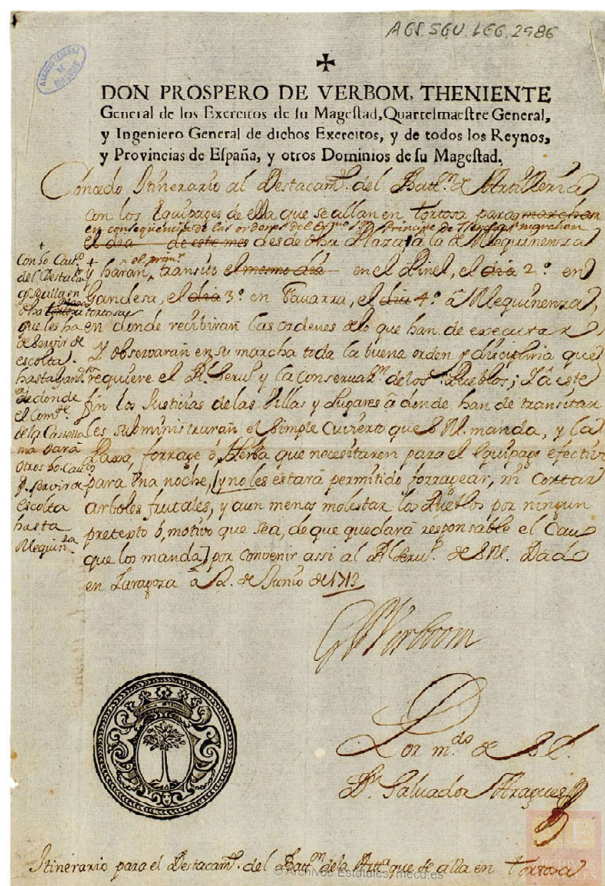 AGS. SGU. LEG. 2986
DON PROSPERO DE VERBOM, THENIENTE
General de los Exercitos de su Magestad, Quartelmaestre General,
y Ingeniero General de dichos Exercitos, y de todos los Reynos,
y Provincias de España, y otros Dominios de su Magestad.
Concedo Itinerario al Destacam.to del Bat.on de Artilleria
con los Equipages de ella que se allan en Tortosa para marchan
en consequencia de las ordenes del Principe de marchan
el dia de este mes desde dha Plaza a la de Mequinenza
y haran transito el mesmo dia en el Pinel, el dia 2º en
Gandesa, el dia 3º en Favarra, el dia 4º â Mequinenza,
en donde recibiran las ordenes de lo que han de executar
Y observaran en su marcha toda la buena orden y disciplina que
requiere el R.l serv.o y la conservaz.on de los Pueblos; Y â este
fin las Justicias de las Villas y Lugares â donde han de transitar
les subministraran el simple cuvierto que S.M. manda, y la
Paxa, forrage ô Yerba que necesitaren para el equipage efectivo
para una noche, y no les estarâ permitido forragear, ni cortar
arboles frutales, y aun menos molestar los Pueblos por ningun
pretexto ô motivo que sea, de que quedarâ responsable el Cavo
que los manda] por convenir assi al R.l serv.o de S.M. Dado
en Zaragoza â 2. de Junio de 1713
Con 50 Cav.os
del Destacam
que les ha
de servir de
escolta
hasta
de donde
el Com.te
de la Castella
na darâ
otros 50 Cav.os
p.a servir de
escolta
hasta
Mequin.za
G P Verboom
Por m.do de S.E.
D.n Salvador Araques
Itinerario para el Destacam.to del Bat.on de la Art.a que se alla en Tortosa
© Archivos Estatales, mecd.es